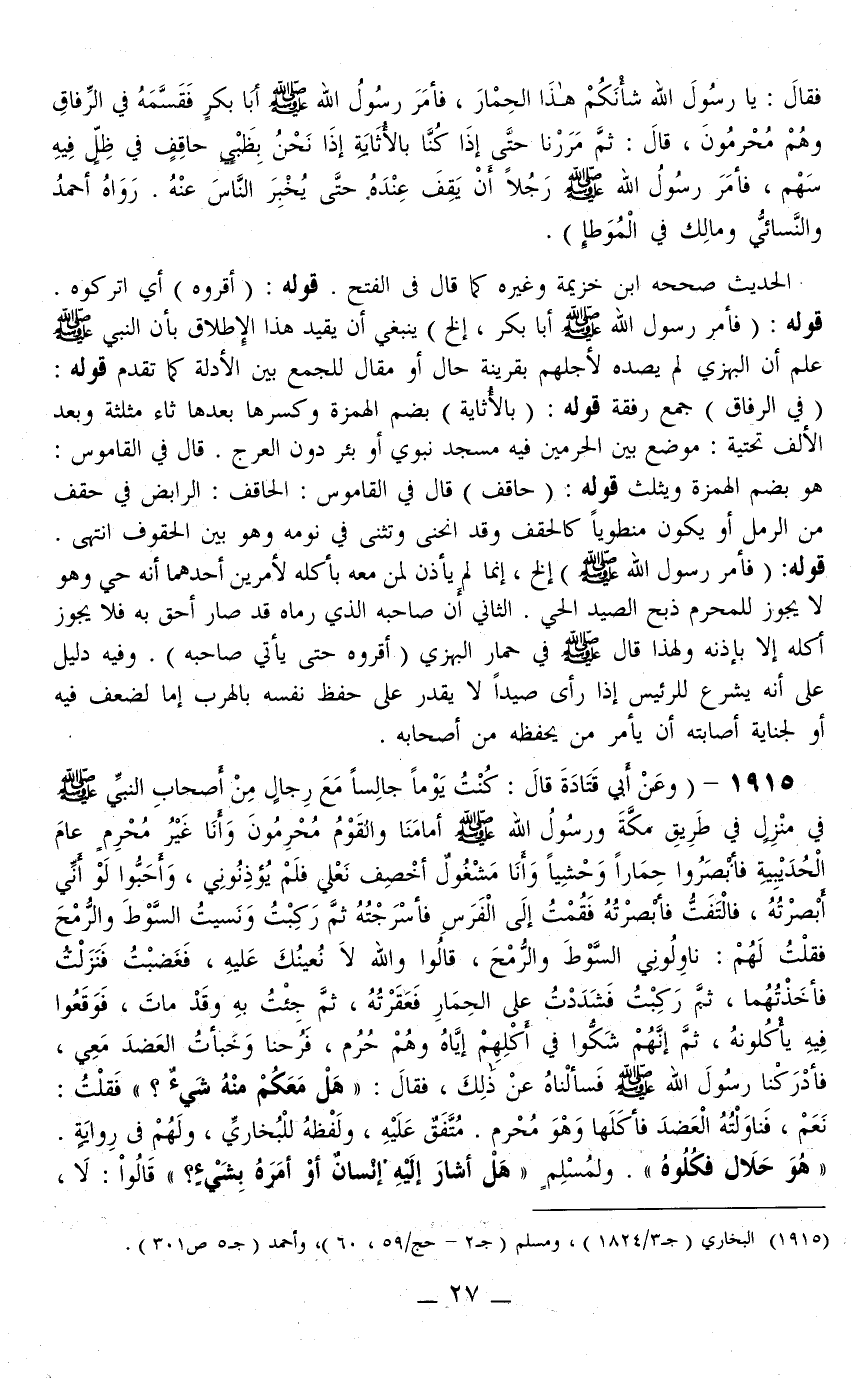 فقالَ : يا رسُولَ الله شأْنَكُمْ هـٰذَا الحِمْارَ ، فأمَرَ رسُولُ الله ﷺ أبا بكرٍ فَقَسَّمَهُ في الرِّفاقِ
وهُمْ مُحْرِمُونَ ، قالَ : ثمَّ مَرَرْنا حتَّى إذَا كُنَّا بالأُثَايَةِ إذَا نَحْنُ بِظَبْيٍ حاقِفٍ في ظِلٍّ فِيهِ
سَهْم ، فأمَرَ رسُولُ الله ﷺ رَجُلاً أَنْ يَقِفَ عِنْدَهُ حتَّى يُخْبِرَ النَّاسَ عنْهُ . رَوَاهُ أحمدُ
والنَّسائيُّ ومالِك في الْمُوَطإِ ) .
الحديث صححه ابن خزيمة وغيره كما قال فى الفتح . قوله : ( أقروه ) أي اتركوه .
قوله : ( فأمر رسول الله ﷺ أبا بكر ، إلخ ) ينبغي أن يقيد هذا الإِطلاق بأن النبي ﷺ
علم أن البهزي لم يصده لأجلهم بقرينة حال أو مقال للجمع بين الأدلة كما تقدم قوله :
( في الرفاق ) جمع رفقة قوله : ( بالأُثاية ) بضم الهمزة وكسرها بعدها ثاء مثلثة وبعد
الألف تحتية : موضع بين الحرمين فيه مسجد نبوي أو بئر دون العرج . قال في القاموس :
هو بضم الهمزة ويثلث قوله : ( حاقف ) قال في القاموس : الحاقف : الرابض في حقف
من الرمل أو يكون منطوياً كالحقف وقد انحنى وتثنى في نومه وهو بين الحقوف انتهى .
قوله: ( فأمر رسول الله ﷺ ) إلخ ، إنما لم يأذن لمن معه بأكله لأمرين أحدهما أنه حي وهو
لا يجوز للمحرم ذبح الصيد الحي . الثاني أن صاحبه الذي رماه قد صار أحق به فلا يجوز
أكله إلا بإذنه ولهذا قال ﷺ في حمار البهزي ( أقروه حتى يأتي صاحبه ) . وفيه دليل
على أنه يشرع للرئيس إذا رأى صيداً لا يقدر على حفظ نفسه بالهرب إما لضعف فيه
أو لجناية أصابته أن يأمر من يحفظه من أصحابه .
١٩١٥ – ( وعَنْ أَبي قَتَادَةَ قالَ : كُنْتُ يَوْماً جالِساً مَعَ رِجالٍ مِنْ أَصحابِ النبيِّ ﷺ
في منْزِلٍ في طَرِيقِ مكَّةَ ورسُولُ الله ﷺ أمامَنَا والقَوْمُ مُحْرِمُونَ وَأَنَا غَيْرُ مُحْرِمٍ عامَ
الْحُدَيْبِيةِ فأبْصَرُوا حِمَاراً وَحْشِياً وَأَنَا مَشْغُولٌ أخْصِف نَعْلي فلَمْ يُؤذِنُونِي ، وَأَحَبُّوا لَوْ أَنِّي
أَبْصرْتُهُ ، فالْتَفَتُّ فأبْصَرْتُهُ فَقُمْتُ إلَى الْفَرَسِ فأَسْرَجْتُهُ ثمَّ رَكِبْتُ وَنَسيتُ السَّوْطَ والرُّمْحَ
فقلْتُ لَهُمْ : ناوِلُونِي السَّوْطَ والرُّمْحَ ، قالُوا والله لاَ نُعينُكَ عَليهِ ، فَغَضبْتُ فَنَزَلْتُ
فأخَذْتُهُما ، ثمَّ رَكِبْتُ فَشَدَدْتُ على الحِمَارِ فَعَقَرْتُهُ ، ثمَّ جِئْتُ بهِ وقَدْ ماتَ ، فَوَقَعُوا
فِيهِ يأْكُلونهُ ، ثمَّ إنَّهُمْ شَكُّوا في أَكْلِهِمْ إيَّاهُ وهُمْ حُرُم ، فَرُحنا وَخَبأتُ العَضدَ مَعِي ،
فأدْرَكْنا رسُولَ الله ﷺ فَسألْناهُ عنْ ذَلِكَ ، فقالَ : « هَلْ مَعَكُمْ منْهُ شَيءٌ ؟ » فَقلْتُ :
نَعَمْ ، فَناوَلْتُهُ الْعَضدَ فأكَلَها وَهْوَ مُحْرم . مُتَّفَقٌ عَلَيْهِ ، ولَفْظهُ لِلْبُخاريِّ ، ولَهُمْ فى رِوايَةٍ .
« هُوَ حَلَال فكُلُوهُ » . ولمُسْلِمٍ « هَلْ أشارَ إلَيْهِ إنْسانٌ أوْ أمَرَهُ بِشَيْءٍ؟ » قَالُواْ : لَا ،
(١٩١٥) البخاري ( جـ٣/١٨٢٤ ) ، ومسلم ( جـ٢ – حج/٥٩ ، ٦٠ )، وأحمد ( جـ٥ ص٣٠١ ) .
— ٢٧ —